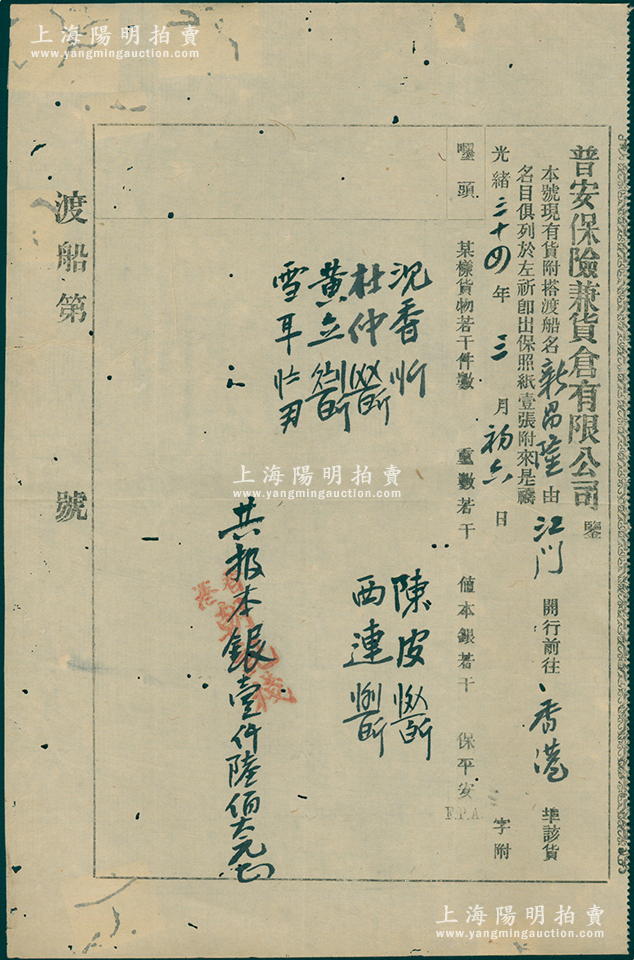 上海陽明拍賣
www.yangmingauction.com
上海陽明拍賣
www.yangmingauction.com
普安保險兼貨倉有限公司 鑒
本號現有貨附搭渡船名 新昌隆 由 江门 開行前往 香港 埠該貨
名目俱列於左祈卽出保照紙壹張附來是禱
光緒 三十四 年 三 月 初六 日 字附
嘜頭 某樣貨物若干件數 重數若干 值本銀若干 保平安 F.P.A.
沉香
杜仲
黄
雪耳
陳皮
西連
共报本銀壹仟陸佰大元
香港
渡船第 號
上海陽明拍賣
www.yangmingauction.com
上海陽明拍賣
www.yangmingauction.com